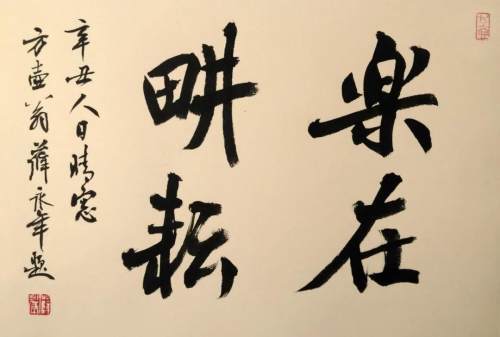 楽在
畊耘
辛丑人日晴窓
方壺翁薛永年题